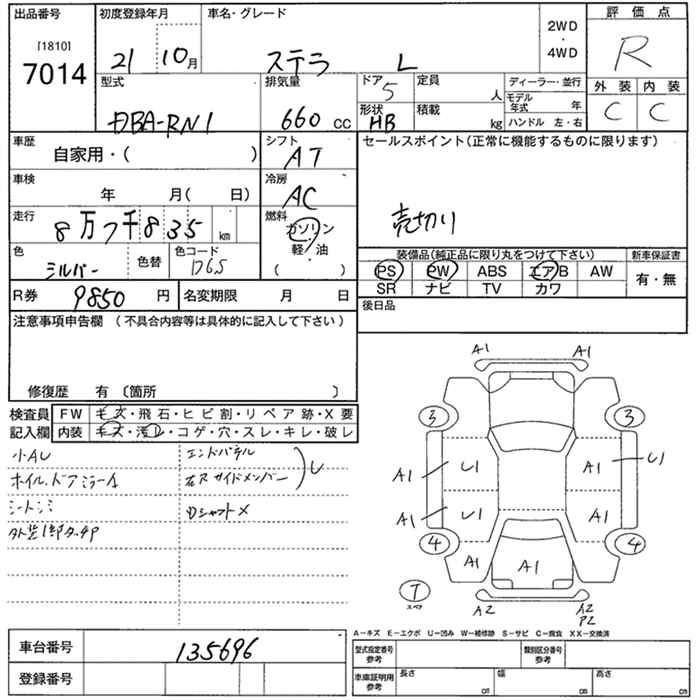 出品番号
[1810]
7014
初度登録年月
21 10月
車名・グレード
ステラ L
2WD
・
4WD
評価点
R
型式
DBA-RN1
排気量
660 CC
ドア 5
形状 HB
定員 人
積載 kg
ディーラー・並行
モデル年式 年
ハンドル 左・右
外装 内装
C C
車歴
自家用・( )
シフト
AT
セールスポイント(正常に機能するものに限ります)
売切り
車検
年 月( 日)
冷房
AC
走行
8万7千835 km
燃料
ガソリン
軽・油
( )
色
シルバー
色替
色コード
D6S
装備品(純正品に限り丸をつけて下さい)
新車保証書
PS PW ABS エアB AW
有・無
SR ナビ TV カワ
R券 9850 円
名変期限 月 日
後日品
注意事項申告欄 (不具合内容等は具体的に記入して下さい)
修復歴 有 〔箇所 〕
検査員
記入欄
FW キズ・飛石・ヒビ割・リペア跡・X要
内装 キズ・汚レ・コゲ・穴・スレ・キレ・破レ
小AU
ホイル、ドアミラーA
シートシミ
エンドパネル
右Rサイドメンバー
U
DシャフトX
A1 A1
3 3
A1 U1 A1 U1
A1 U1 A1
4 4
A1 A1
T
スペア
A2 A2
P2
A-キズ E-エクボ U-凹み W-補修跡 S-サビ C-腐食 XX-交換済
車台番号 135696
型式指定番号
参考
類別区分番号
参考
登録番号
車庫証明用
参考
長さ cm
幅 cm
高さ cm